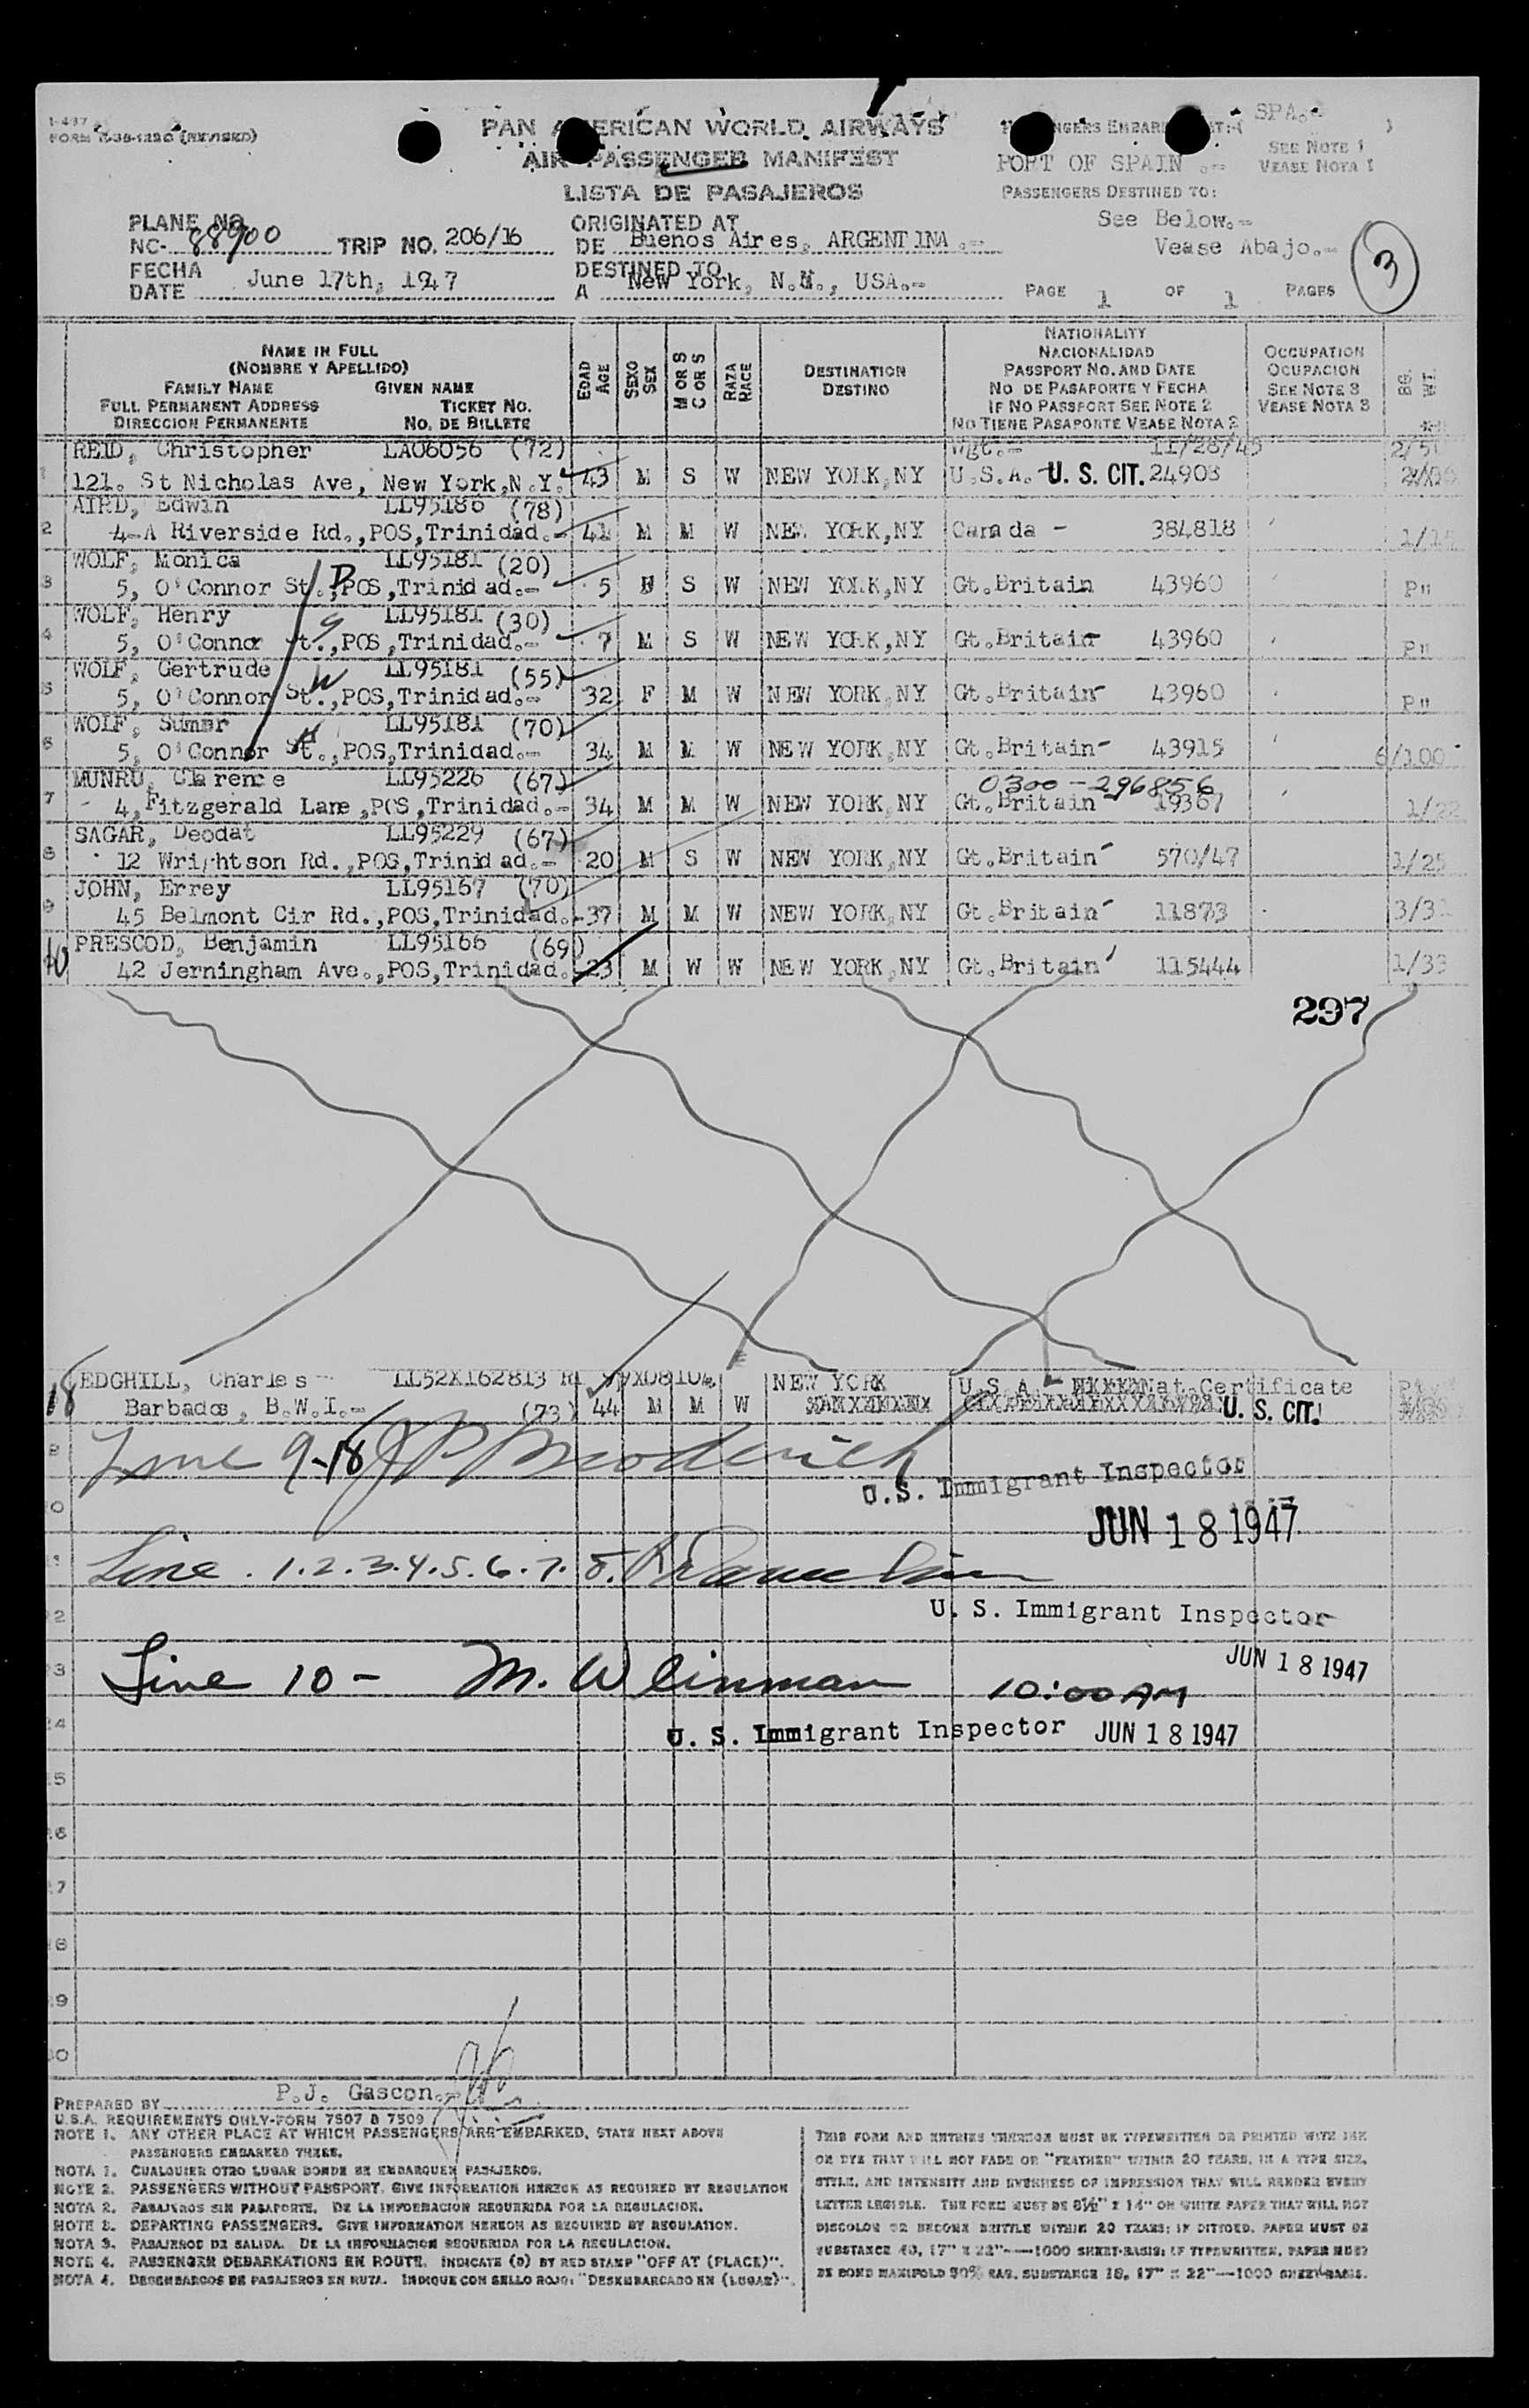 I-437
FORM (REVISED)
PAN AMERICAN WORLD AIRWAYS
AIR PASSENGER MANIFEST
LISTA DE PASAJEROS
SPA.-
PORT OF SPAIN .-
SEE NOTE 1
VEASE NOTA 1
PASSENGERS DESTINED TO:
See Below.-
Vease Abajo.-
3
PLANE NO.
NC- 88900 TRIP NO. 206/16
ORIGINATED AT
DE Buenos Aires, ARGENTINA.-
FECHA
DATE June 17th, 1947
DESTINED TO
A New York, N.Y., USA.-
PAGE 1 OF 1 PAGES
NAME IN FULL
(NOMBRE Y APELLIDO)
FAMILY NAME GIVEN NAME
FULL PERMANENT ADDRESS TICKET NO.
DIRECCION PERMANENTE NO. DE BILLETE
EDAD AGE
SEXO SEX
M OR S C OR S
RAZA RACE
DESTINATION
DESTINO
NATIONALITY
NACIONALIDAD
PASSPORT NO. AND DATE
NO. DE PASAPORTE Y FECHA
IF NO PASSPORT SEE NOTE 2
NO TIENE PASAPORTE VEASE NOTA 2
OCCUPATION
OCUPACION
SEE NOTE 3
VEASE NOTA 3
BG. WT.
REID, Christopher LA06056 (72) 11/28/45
1 121. St Nicholas Ave, New York, N.Y. 43 M S W NEW YORK, NY U.S.A. - U. S. CIT. 24903
AIRD, Edwin LL95186 (78)
2 4-A Riverside Rd., POS, Trinidad.- 41 M M W NEW YORK, NY Canada - 384818
WOLF, Monica LL95181 (20)
3 5, O'Connor St., POS, Trinidad.- 5 F S W NEW YORK, NY Gt.Britain 43960 P"
WOLF, Henry LL95181 (30)
4 5, O'Connor St., POS, Trinidad.- 7 M S W NEW YORK, NY Gt.Britain 43960 P"
WOLF, Gertrude LL95181 (55)
5 5, O'Connor St., POS, Trinidad.- 32 F M W NEW YORK, NY Gt.Britain 43960 P"
WOLF, LL95181 (70)
6 5, O'Connor St., POS, Trinidad.- 34 M M W NEW YORK, NY Gt.Britain 43915 6/100
MUNRO, Clarence LL95226 (67) 0300-296856
7 4, Fitzgerald Lane, POS, Trinidad.- 34 M M W NEW YORK, NY Gt.Britain 19367 1/22
SAGAR, Deodat LL95229 (67)
8 12 Wrightson Rd., POS, Trinidad.- 20 M S W NEW YORK, NY Gt.Britain 570/47 1/25
JOHN, Errey LL95167 (70)
9 45 Belmont Cir Rd., POS, Trinidad.- 37 M M W NEW YORK, NY Gt.Britain 11873
10 PRESCOD, Benjamin LL95166 (69)
42 Jerningham Ave., POS, Trinidad. 23 M W W NEW YORK, NY Gt.Britain 115444 1/33
297
18 EDGHILL, Charles NEW YORK U S A Nat.Certificate
Barbados, B.W.I.- (73) 44 M M W U. S. CIT.
Line 9-18
U.S. Immigrant Inspector
JUN 18 1947
Line. 1.2.3.4.5.6.7.8.
U. S. Immigrant Inspector
JUN 18 1947
Line 10 - M. Weinman 10:00 AM
U. S. Immigrant Inspector JUN 18 1947
PREPARED BY P.J. Gascon.-
U.S.A. REQUIREMENTS ONLY-FORM 7507 & 7509
NOTE 1. ANY OTHER PLACE AT WHICH PASSENGERS ARE EMBARKED, STATE NEXT ABOVE
PASSENGERS EMBARKED THERE.
NOTA 1. CUALQUIER OTRO LUGAR DONDE SE EMBARQUEN PASAJEROS.
NOTE 2. PASSENGERS WITHOUT PASSPORT, GIVE INFORMATION HEREON AS REQUIRED BY REGULATION
NOTA 2. PASAJEROS SIN PASAPORTE. DE LA INFORMACION REQUERIDA POR LA REGULACION.
NOTE 3. DEPARTING PASSENGERS. GIVE INFORMATION HEREON AS REQUIRED BY REGULATION.
NOTA 3. PASAJEROS DE SALIDA. DE LA INFORMACION REQUERIDA POR LA REGULACION.
NOTE 4. PASSENGER DEBARKATIONS EN ROUTE, INDICATE (@) BY RED STAMP "OFF AT (PLACE)".
NOTA 4. DESEMBARCOS DE PASAJEROS EN RUTA. INDIQUE CON SELLO ROJO: "DESEMBARCADO EN (LUGAR)".
THIS FORM AND ENTRIES THEREON MUST BE TYPEWRITTEN OR PRINTED WITH INK
OR DYE THAT WILL NOT FADE OR "FEATHER" WITHIN 20 YEARS, IN A TYPE SIZE,
STYLE, AND INTENSITY AND EVENNESS OF IMPRESSION THAT WILL RENDER EVERY
LETTER LEGIBLE. THE FORM MUST BE 8½" X 14" ON WHITE PAPER THAT WILL NOT
DISCOLOR OR BECOME BRITTLE WITHIN 20 YEARS; IF DITTOED, PAPER MUST BE
SUBSTANCE 40, 17" X 22"—1000 SHEET-BASIS; IF TYPEWRITTEN, PAPER MUST
BE BOND MANIFOLD 50% RAG, SUBSTANCE 18, 17" X 22"—1000 SHEET BASIS.